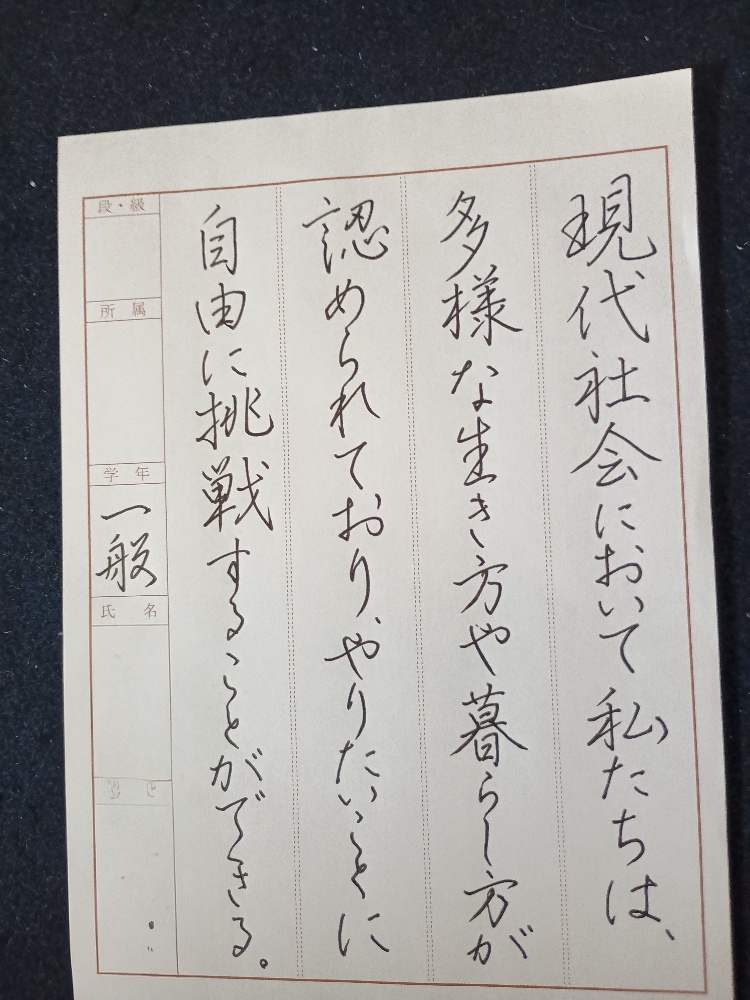 現代社会において私たちは、
多様な生き方や暮らし方が
認められており、やりたいことに
自由に挑戦することができる。
段・級
所属
学年
一般
氏名